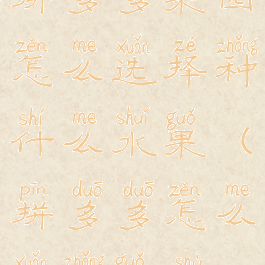 多多果园
zěn me xuǎn zé zhǒng
怎么选择种
shí me shuǐ guǒ
什么水果（
pīn duō duō zěn me
拼多多怎么
xuǎn zhǒng guǒ shù